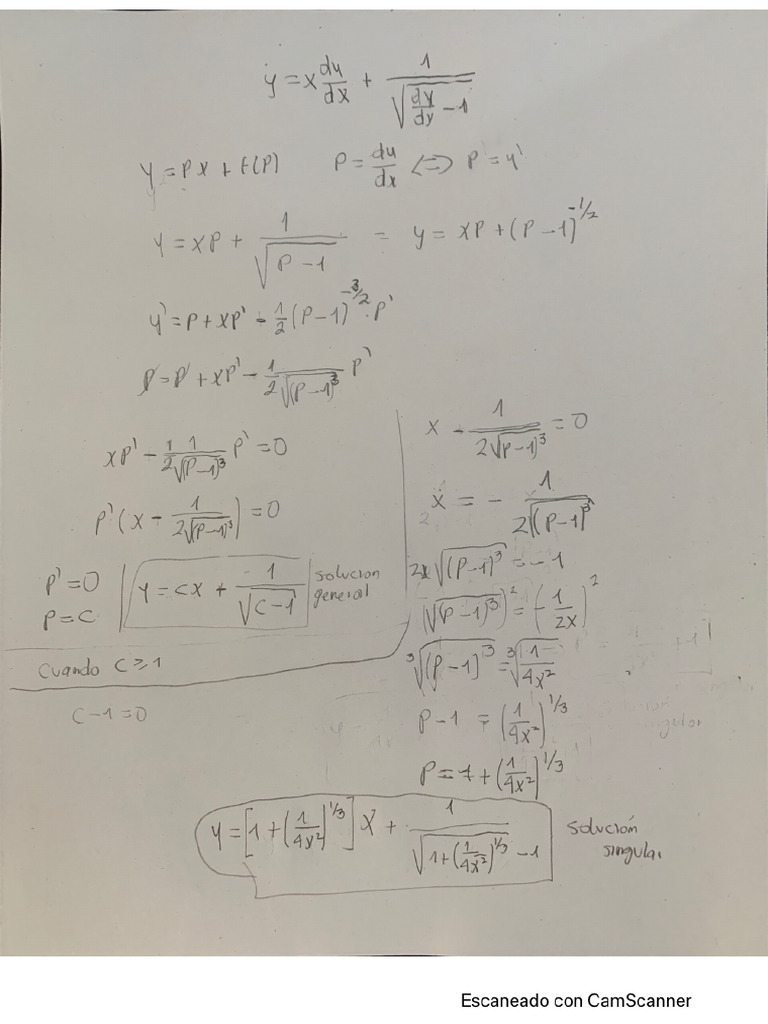 y = x dy/dx + 1/√(dy/dy - 1)
y = Px + f(P) P = dy/dx <=> P = y'
y = xP + 1/√(P - 1) = y = xP + (P - 1)^(-1/2)
y' = P + xP' - 1/2 (P - 1)^(-3/2) · P'
P = P + xP' - 1/(2√(P-1)³) P'
xP' - 1/2 1/√(P-1)³ P' = 0
P' (x - 1/(2√(P-1)³)) = 0
P' = 0
P = C
y = Cx + 1/√(C - 1) solucion general
Cuando C ≥ 1
C - 1 = 0
x - 1/(2√(P-1)³) = 0
x = - 1/(2√(P-1)³)
2x√(P-1)³ = -1
(√(P-1)³)² = (-1/2x)²
³√(P-1)³ = ³√(1/4x²)
P - 1 = (1/4x²)^(1/3)
P = 1 + (1/4x²)^(1/3)
y = [1 + (1/4x²)^(1/3)] x + 1/√(1 + (1/4x²)^(1/3) - 1)
solución
singular
Escaneado con CamScanner